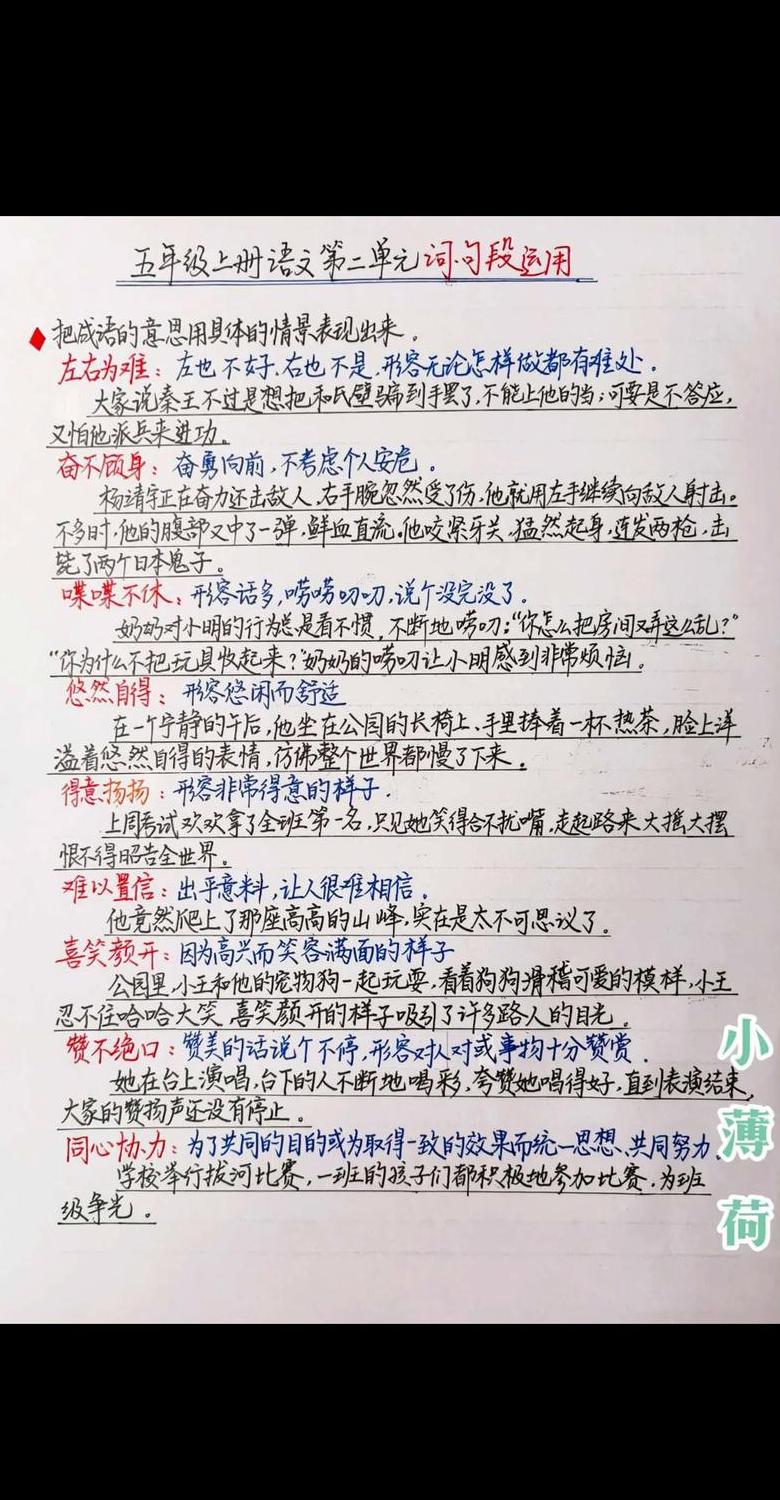 五年级上册语文第二单元词句段运用
把成语的意思用具体的情景表现出来。
左右为难：左也不好,右也不是,形容无论怎样做都有难处。
大家说秦王不过是想把和氏璧骗到手罢了,不能上他的当;可要是不答应,
又怕他派兵来进功。
奋不顾身：奋勇向前,不考虑个人安危。
杨靖宇正在奋力还击敌人,右手腕忽然受了伤,他就用左手继续向敌人射击。
不多时,他的腹部又中了一弹,鲜血直流。他咬紧牙关,猛然起身,连发两枪,击
毙了两个日本鬼子。
喋喋不休：形容话多,唠唠叨叨,说个没完没了。
奶奶对小明的行为总是看不惯,不断地唠叨:“你怎么把房间又弄这么乱?”
“你为什么不把玩具收起来?”奶奶的唠叨让小明感到非常烦恼。
悠然自得：形容悠闲而舒适
在一个宁静的午后,他坐在公园的长椅上、手里捧着一杯热茶,脸上洋
溢着悠然自得的表情,仿佛整个世界都慢了下来。
得意扬扬：形容非常得意的样子.
上周考试欢欢拿了全班第一名,只见她笑得合不拢嘴,走起路来大摇大摆
恨不得昭告全世界。
难以置信：出乎意料,让人很难相信.
他竟然爬上了那座高高的山峰,实在是太不可思议了。
喜笑颜开：因为高兴而笑容满面的样子
公园里,小王和他的宠物狗一起玩耍,看着狗狗滑稽可爱的模样,小王
忍不住哈哈大笑,喜笑颜开的样子吸引了许多路人的目光。
赞不绝口：赞美的话说个不停,形容对人对或事物十分赞赏.
她在台上演唱,台下的人不断地喝彩,夸赞她唱得好,直到表演结束,
大家的赞扬声还没有停止。
同心协力：为了共同的目的或为取得一致的效果而统一思想、共同努力.
学校举行拔河比赛,一班的孩子们都积极地参加比赛,为班
级争光。
小薄荷